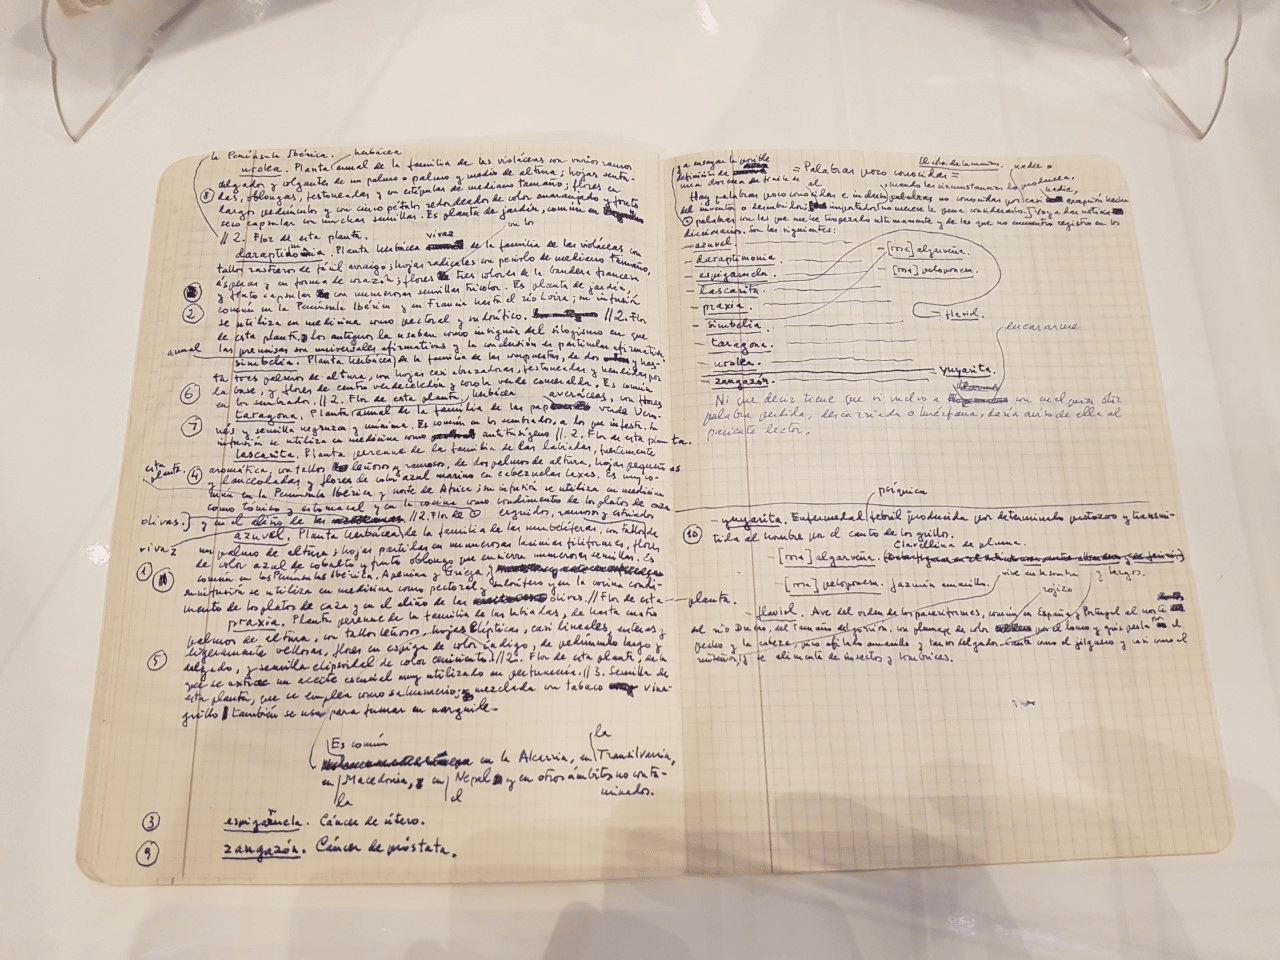 la Península Ibérica. herbácea
urolea. Planta anual de la familia de las violáceas con varios ramos
delgados y colgantes de un palmo o palmo y medio de altura; hojas senta-
8 das, oblongas, festoneadas y con estípulas de mediano tamaño; flores en
largos pedúnculos y con cinco pétalos redondeados de color anaranjado y fruto
seco capsular con muchas semillas. Es planta de jardín, común en
// 2. Flor de esta planta. vivaz con los
daraptimonia. Planta herbácea de la familia de las violáceas con
tallos rastreros de fácil arraigo; hojas radicales con peciolo de mediano tamaño,
ásperas y en forma de corazón; flores tres colores de la bandera francesa
y fruto capsular con numerosas semillas tricolor. Es planta de jardín,
2 común en la Península Ibérica y en Francia hasta el río Loira; su infusión
se utiliza en medicina como pectoral y sudorífico. // 2. Flor
de esta planta. Los antiguos la usaban como insignia del silogismo en que
las premisas son universales afirmativas y la conclusión es particular afirmativa.
anual simbelia. Planta herbácea de la familia de las compuestas, de dos has-
ta tres palmos de altura, con hojas casi abrazadoras, festoneadas y hendidas por
la base, y flores de centro verdeceledón y corola verde esmeralda. Es común
6 en los sembrados. // 2. Flor de esta planta. herbácea averáceas, con flores
taragona. Planta anual de la familia de las pap verde Vero-
7 nés y semilla negruzca y mínima. Es común en los sembrados, a los que infesta. Su
infusión se utiliza en medicina como antitusígeno // 2. Flor de esta planta.
lascarita. Planta perenne de la familia de las labiadas, fuertemente
esta planta. 4 aromática, con tallos leñosos y ramosos, de dos palmos de altura, hojas pequeñas
y lanceoladas y flores de color azul marino en cabezuelas laxas. Es muy co-
mún en la Península Ibérica y norte de África; su infusión se utiliza en medicina
como tónico y estomacal y en la cocina como condimento de los platos de caza
olivas. y en el aliño de las // 2. Flor de erguidos, ramosos y estriados
azuvel. Planta herbácea de la familia de las umbelíferas, con tallos de
vivaz un palmo de altura; hojas partidas en numerosas lacinias filiformes, flores
de color azul de cobalto y fruto oblongo que encierra numerosas semillas. Es
1 común en las Penínsulas Ibérica, Apenina y Griega,
su infusión se utiliza en medicina como pectoral y sudorífero y en la cocina condi-
mento de los platos de caza y en el aliño de las olivas. // Flor de esta planta.
praxia. Planta perenne de la familia de las labiadas, de hasta cuatro
palmos de altura, con tallos leñosos, hojas elípticas, casi lineales, enteras y
ligeramente vellosas, flores en espiga de color índigo, de pedúnculo largo y
5 delgado, y semilla elipsoidal de color ceniciento. // 2. Flor de esta planta, de la
que se extrae un aceite esencial muy utilizado en perfumería. // 3. Semilla de
esta planta, que se emplea como sahumerio; mezclada con tabaco vina-
grillo también se usa para fumar en narguile.
Es común la
en la Alcarria, en Transilvania,
en Macedonia, en Nepal y en otros ámbitos no conta-
la el minados.
3 espigañuela. Cáncer de útero.
9 zangazón. Cáncer de próstata.
= Palabras poco conocidas =
Hay palabras poco conocidas e incluso palabras no conocidas por casi
palabras con las que me he tropezado últimamente y de las que no encuentro registro en los
diccionarios. Son las siguientes:
- azuvel
- daraptimonia - [rosa] algarveña.
- espigañuela - [rosa] peloponesa.
- lascarita.
- praxia.
- simbelia. - flaviol.
- taragona. encararme
- urolea.
- zangazón. yuyarita.
Ni que decir tiene que si vuelvo a con cualquier otra
palabra perdida, descarriada o huérfana, daría aviso de ella al
paciente lector.
pirúnica
10 - yuyarita. Enfermedad febril producida por determinado protozoo y transmi-
tida al hombre por el canto de los grillos.
Clavellina de pluma.
- [rosa] algarveña.
- [rosa] peloponesa. Jazmín amarillo. vive en la sombra y largos.
rojizo
- flaviol. Ave del orden de los paseriformes, común en España y Portugal al norte
del río Duero, del tamaño del gorrión, con plumaje de color por el lomo y gris perla en el
pecho y la cabeza, pico afilado amarillo y tarsos delgados. Canta como el jilguero y casi como el
ruiseñor, y se alimenta de insectos y lombrices.